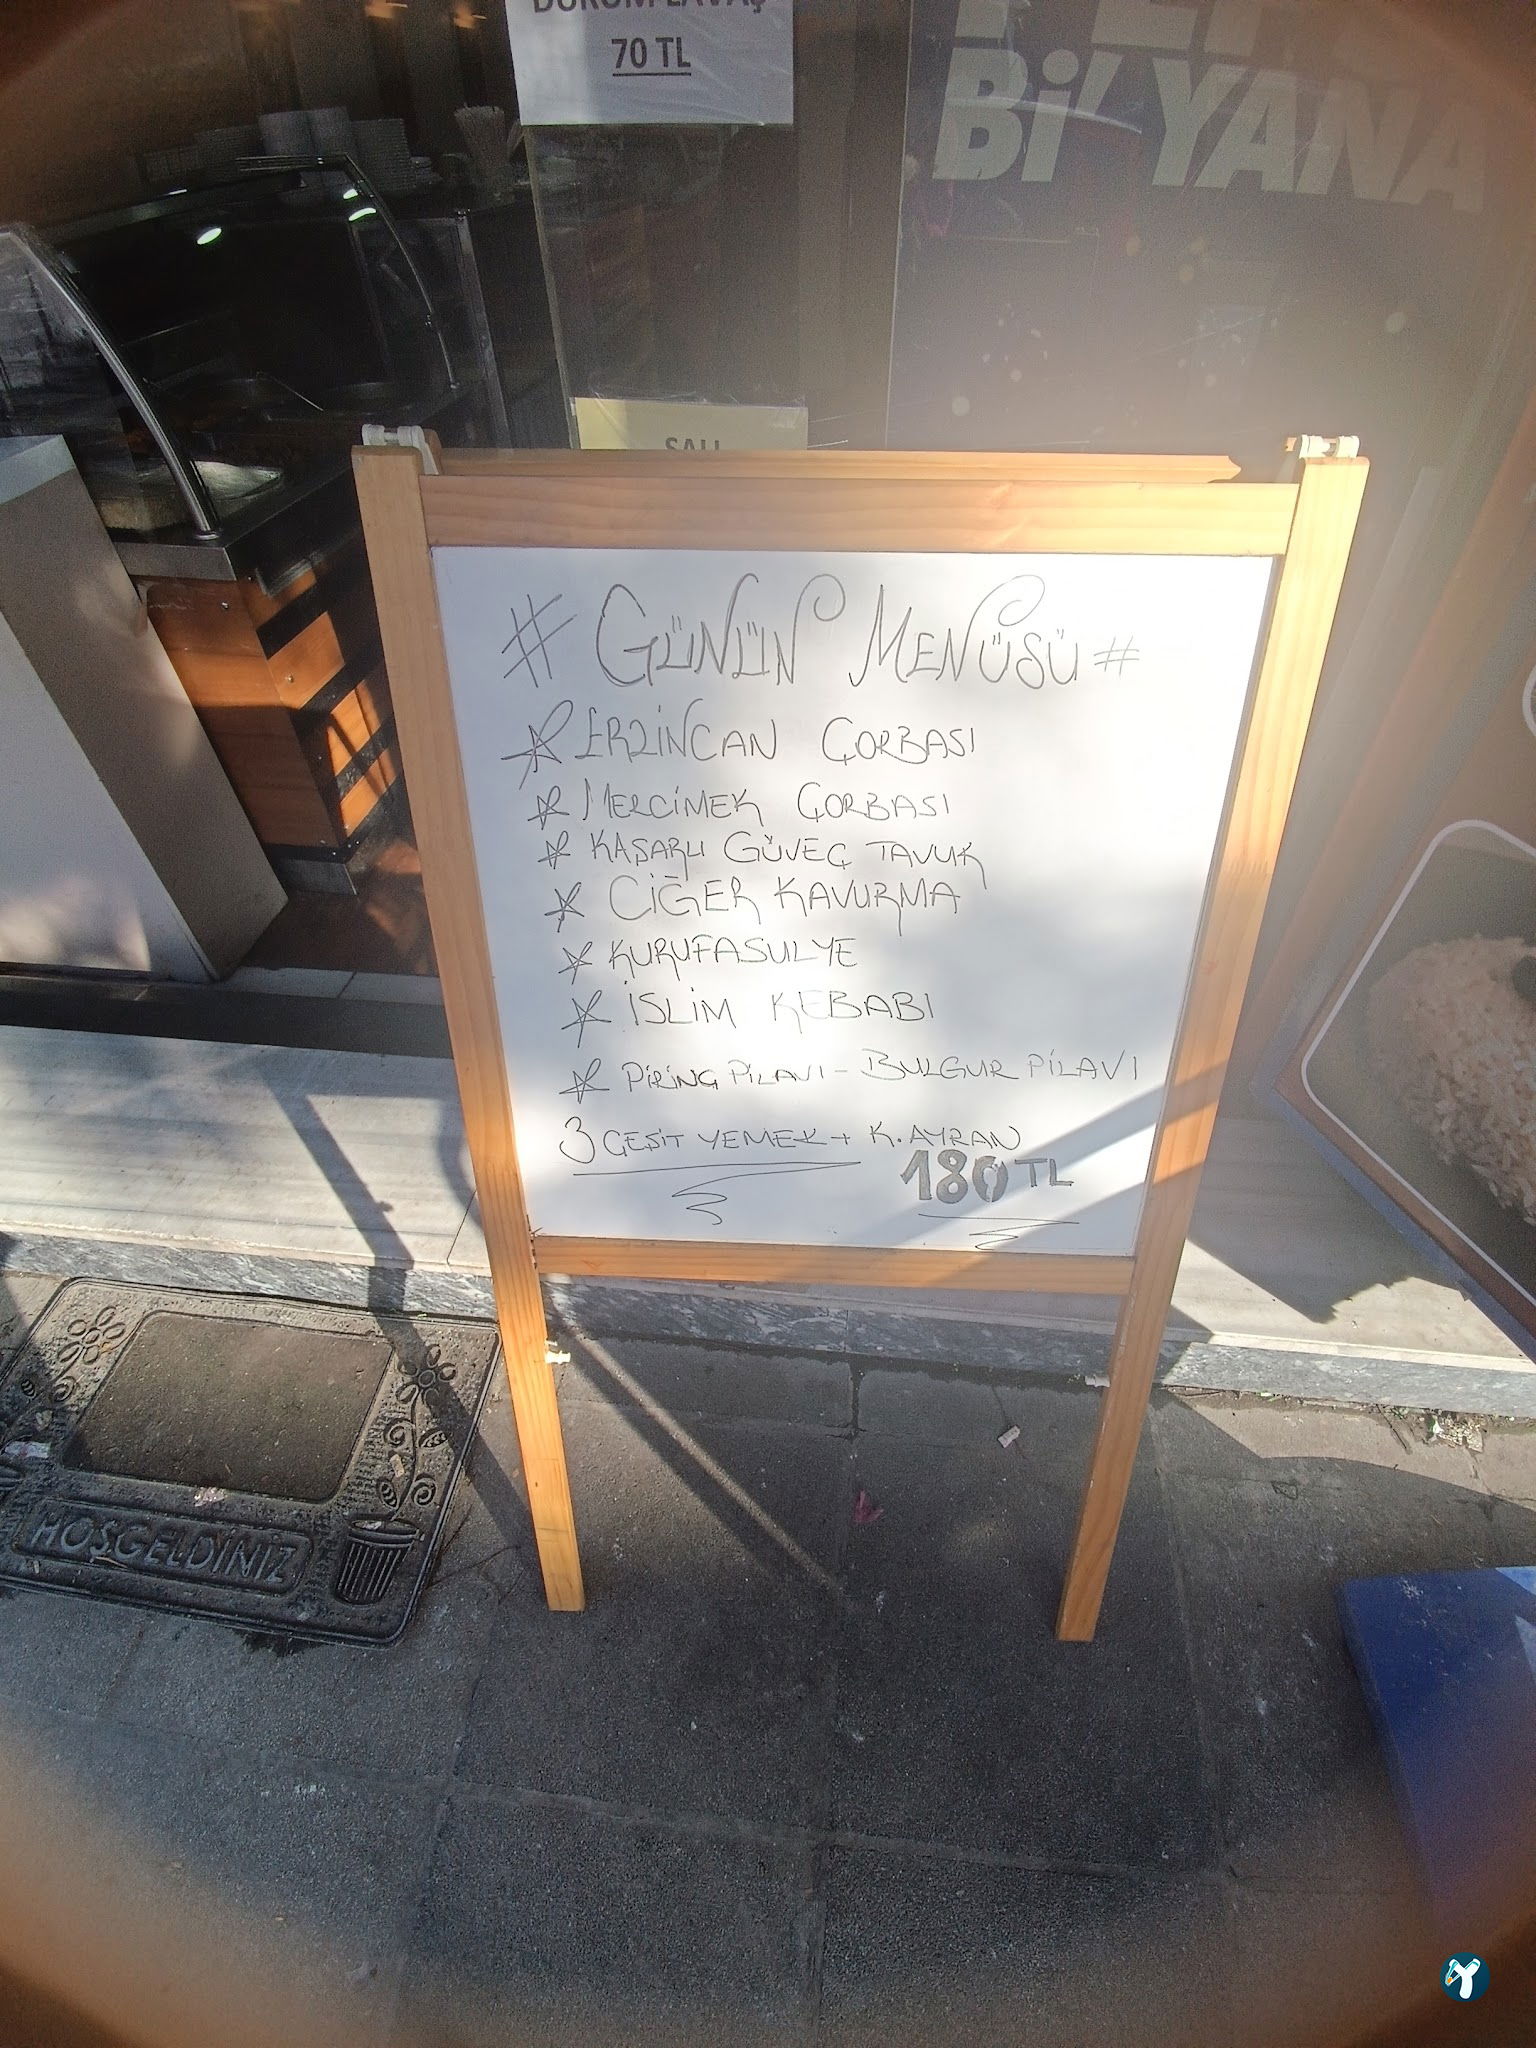 DÜRÜM LAVAŞ
70 TL
Bi' YANA
SALI
# GÜNÜN MENÜSÜ #
ERZİNCAN ÇORBASI
MERCİMEK ÇORBASI
KAŞARLI GÜVEÇ TAVUK
CİĞER KAVURMA
KURUFASULYE
İSLİM KEBABI
PİRİNÇ PİLAVI - BULGUR PİLAVI
3 ÇEŞİT YEMEK + K. AYRAN
180 TL
HOŞGELDİNİZ